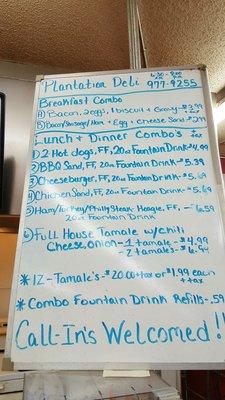 Plantation Deli 6:30 - 8:00
977-9255
Breakfast Combo
A) Bacon, 2 eggs, 1 biscuit + Gravy - $3.99
+ tax
B) Bacon/Sausage/Ham + Egg + Cheese Sand. - $2.99
Lunch + Dinner Combo's + tax
1) 2 Hot dogs, FF, 20oz Fountain Drink - $4.99
2) BBQ Sand, FF, 20oz Fountain Drink - $5.39
3) Cheeseburger, FF, 20oz Fountain Drink - $5.69
4) Chicken Sand, FF, 20oz Fountain Drink - $5.69
5) Ham/Turkey/Philly Steak - Hoagie, FF, - $6.59
20oz Fountain Drink
6) Full House Tamale w/ chili
Cheese, onion - 1 tamale - $4.99
- 2 tamale's - $6.94
* 12 - Tamale's - $20.00 + tax or $1.99 each
+ tax
* Combo Fountain Drink Refills - .59
Call-In's Welcomed!!